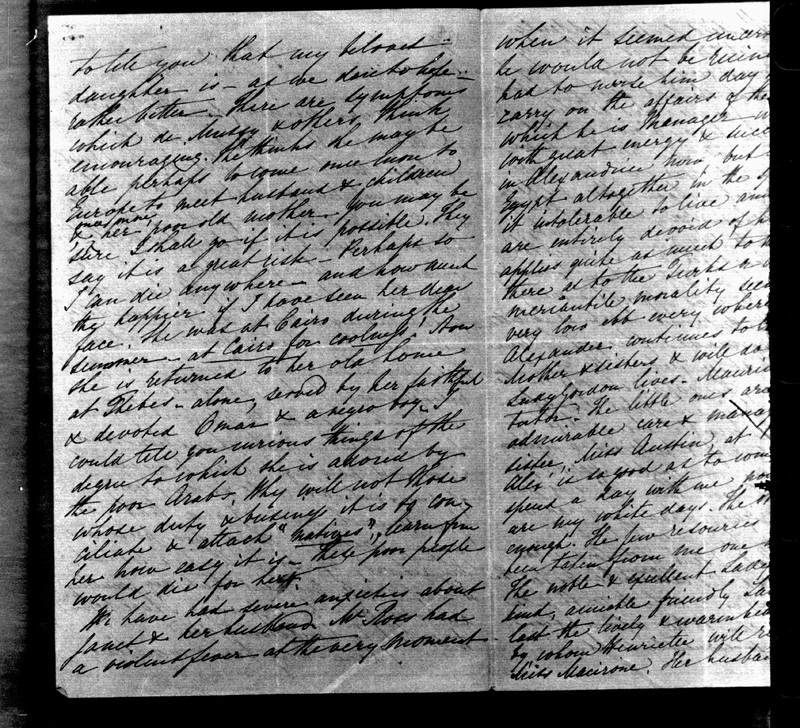 to tell you that my beloved
daughter is – as we dare to hope –
rather better. There are symptoms
which Dr Mussy & others, think
encouraging. He thinks she may be
able perhaps to come once more to
Europe to meet husband & children
& her poor old mother. You may be
sure I shall go if it is possible. They
say it is a great risk – Perhaps so
I can die anywhere – and how much
the happier if I have seen her dear
face. She was at Cairo during the
summer – at Cairo for coolness! Now
she is returned to her old home
at Thebes – alone, served by her faithful
& devoted Omar & a negro boy. I
could tell you curious things of the
degree to which she is adored by
the poor Arabs. Why will not those
whose duty & business it is to con-
ciliate & attach "natives", learn from
her how easy it is – These poor people
would die for her.
We have had severe anxieties about
Janet & her husband. Mr Ross had
a violent fever at the very moment
when it seemed
he would not be
had to nurse him day
carry on the affairs of the
which he is Manager
with great energy &
in Alexandria now but
Egypt altogether in the
it intolerable to live
are entirely devoid of
applies quite as much to
there as to the Turks
mercantile morality
very low ebb every where
Alexander continues to
Mother & sisters & will
Lady Gordon lives – Maurice
tutor. The little one
admirable care &
sister, Miss Austin, at
Alex is so good as to come
spend a day with me
are my white days.
enough. The few resources
been taken from me one
The noble & excellent Lady
kind, amiable friendly
last the lively & warm
by whom Henrietta will
Miss Macirone. Her husband